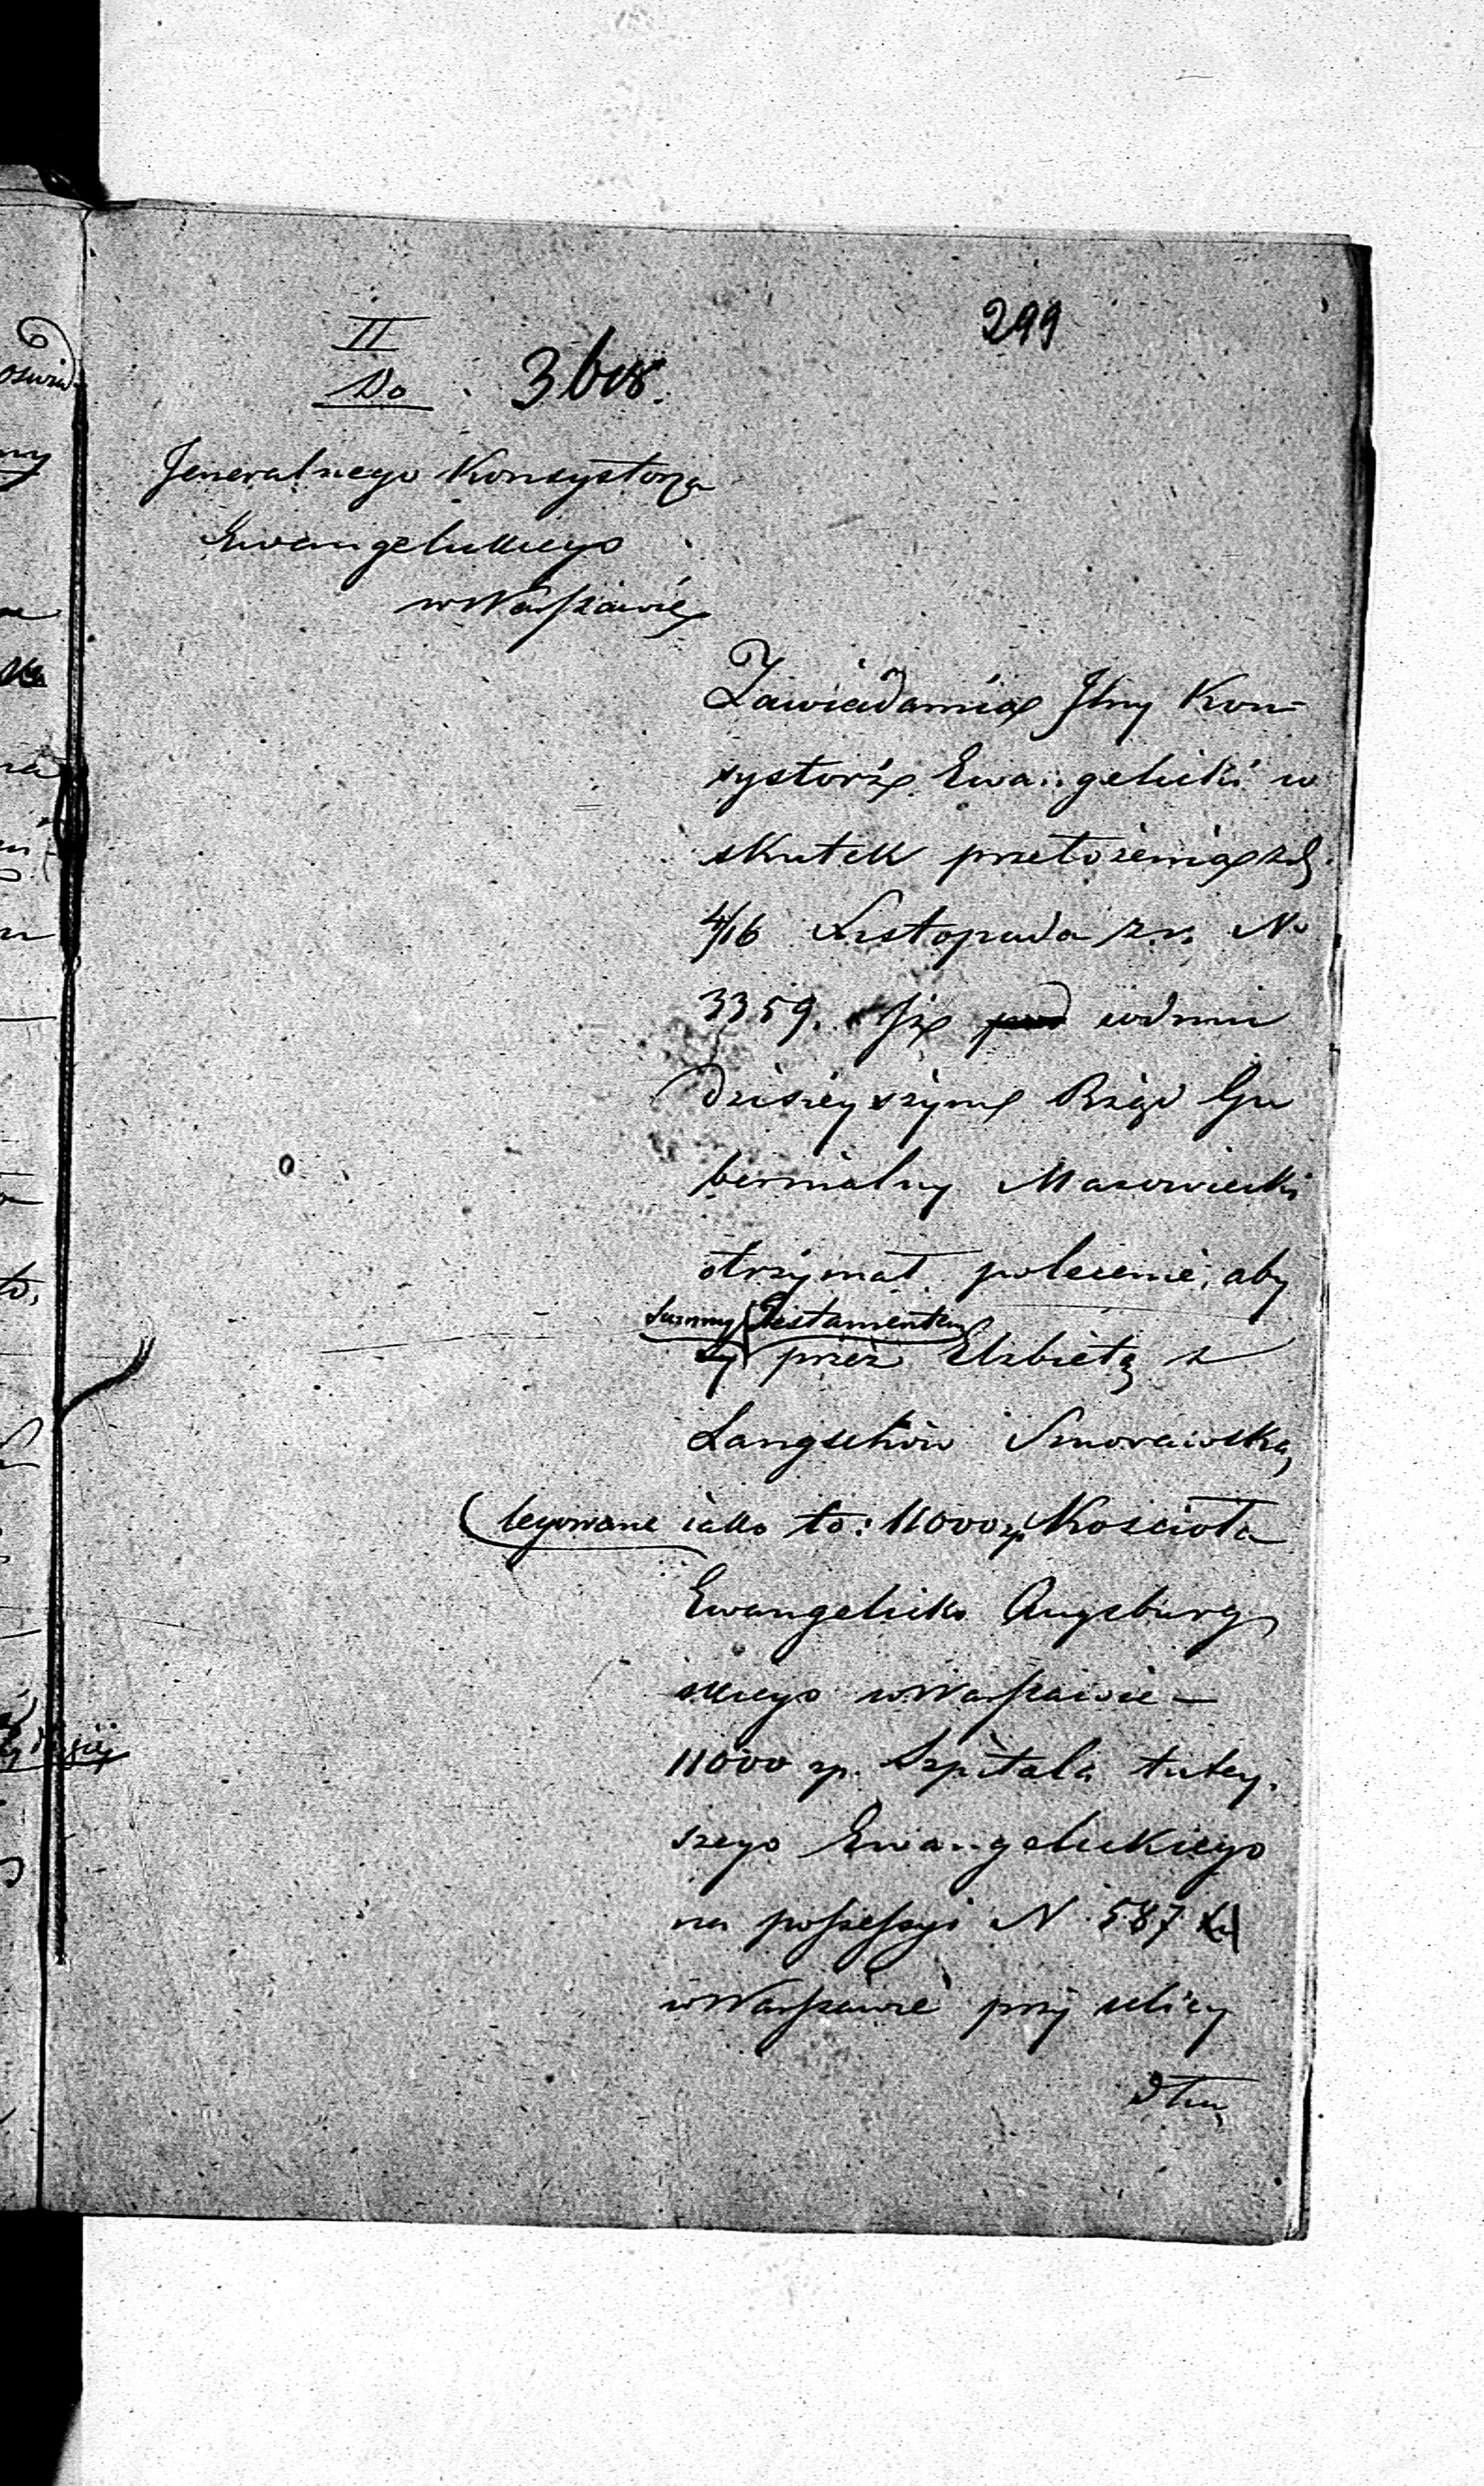 299
II
Do 3bis.
Jeneralnego Konsystorza
Ewangelickiego
w Warszawie
Zawiadamia Jlny Kon-
systorz Ewangelicki w
skutek przełożenia z d.
4/16 Listopada r.z. No
3359. iż w dniu
dzisieyszym Rząd Gu
bernialny Mazowiecki
otrzymał polecenie, aby
summy Testamentem
przez Elżbietą z
Langschów Smorawską
legowane iako to: 11000 zp Kościoła
Ewangelicko Augsburg
skiego w Warszawie —
11000 zp. Szpitala tutey.
szego Ewangelickiego
na possessyi N 587
w Warszawie przy ulicy
Dłu